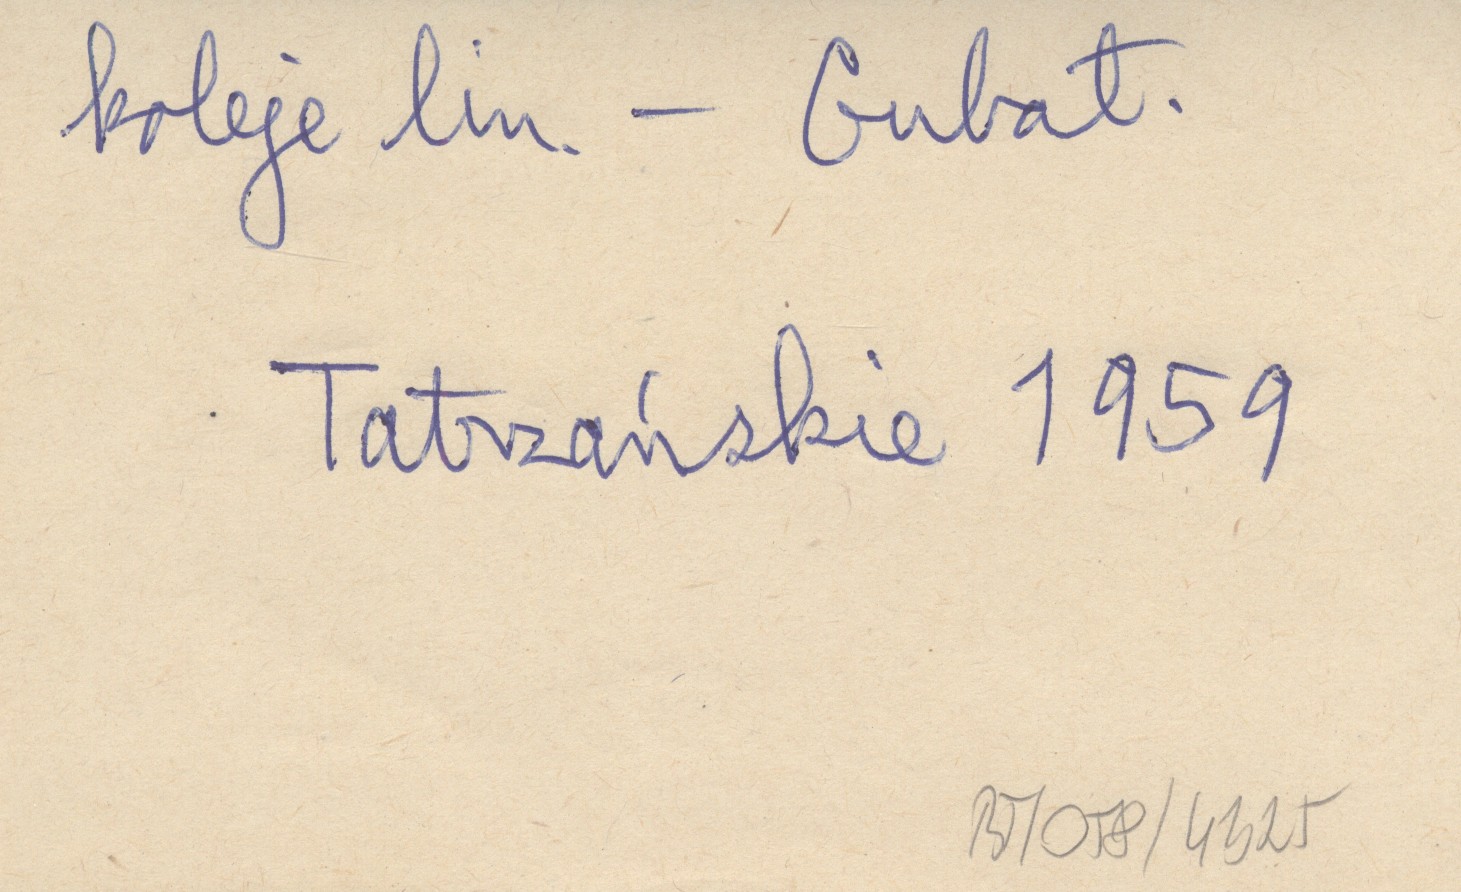 koleje lin. – Gubat.
Tatrzańskie 1959
BT/058/4325